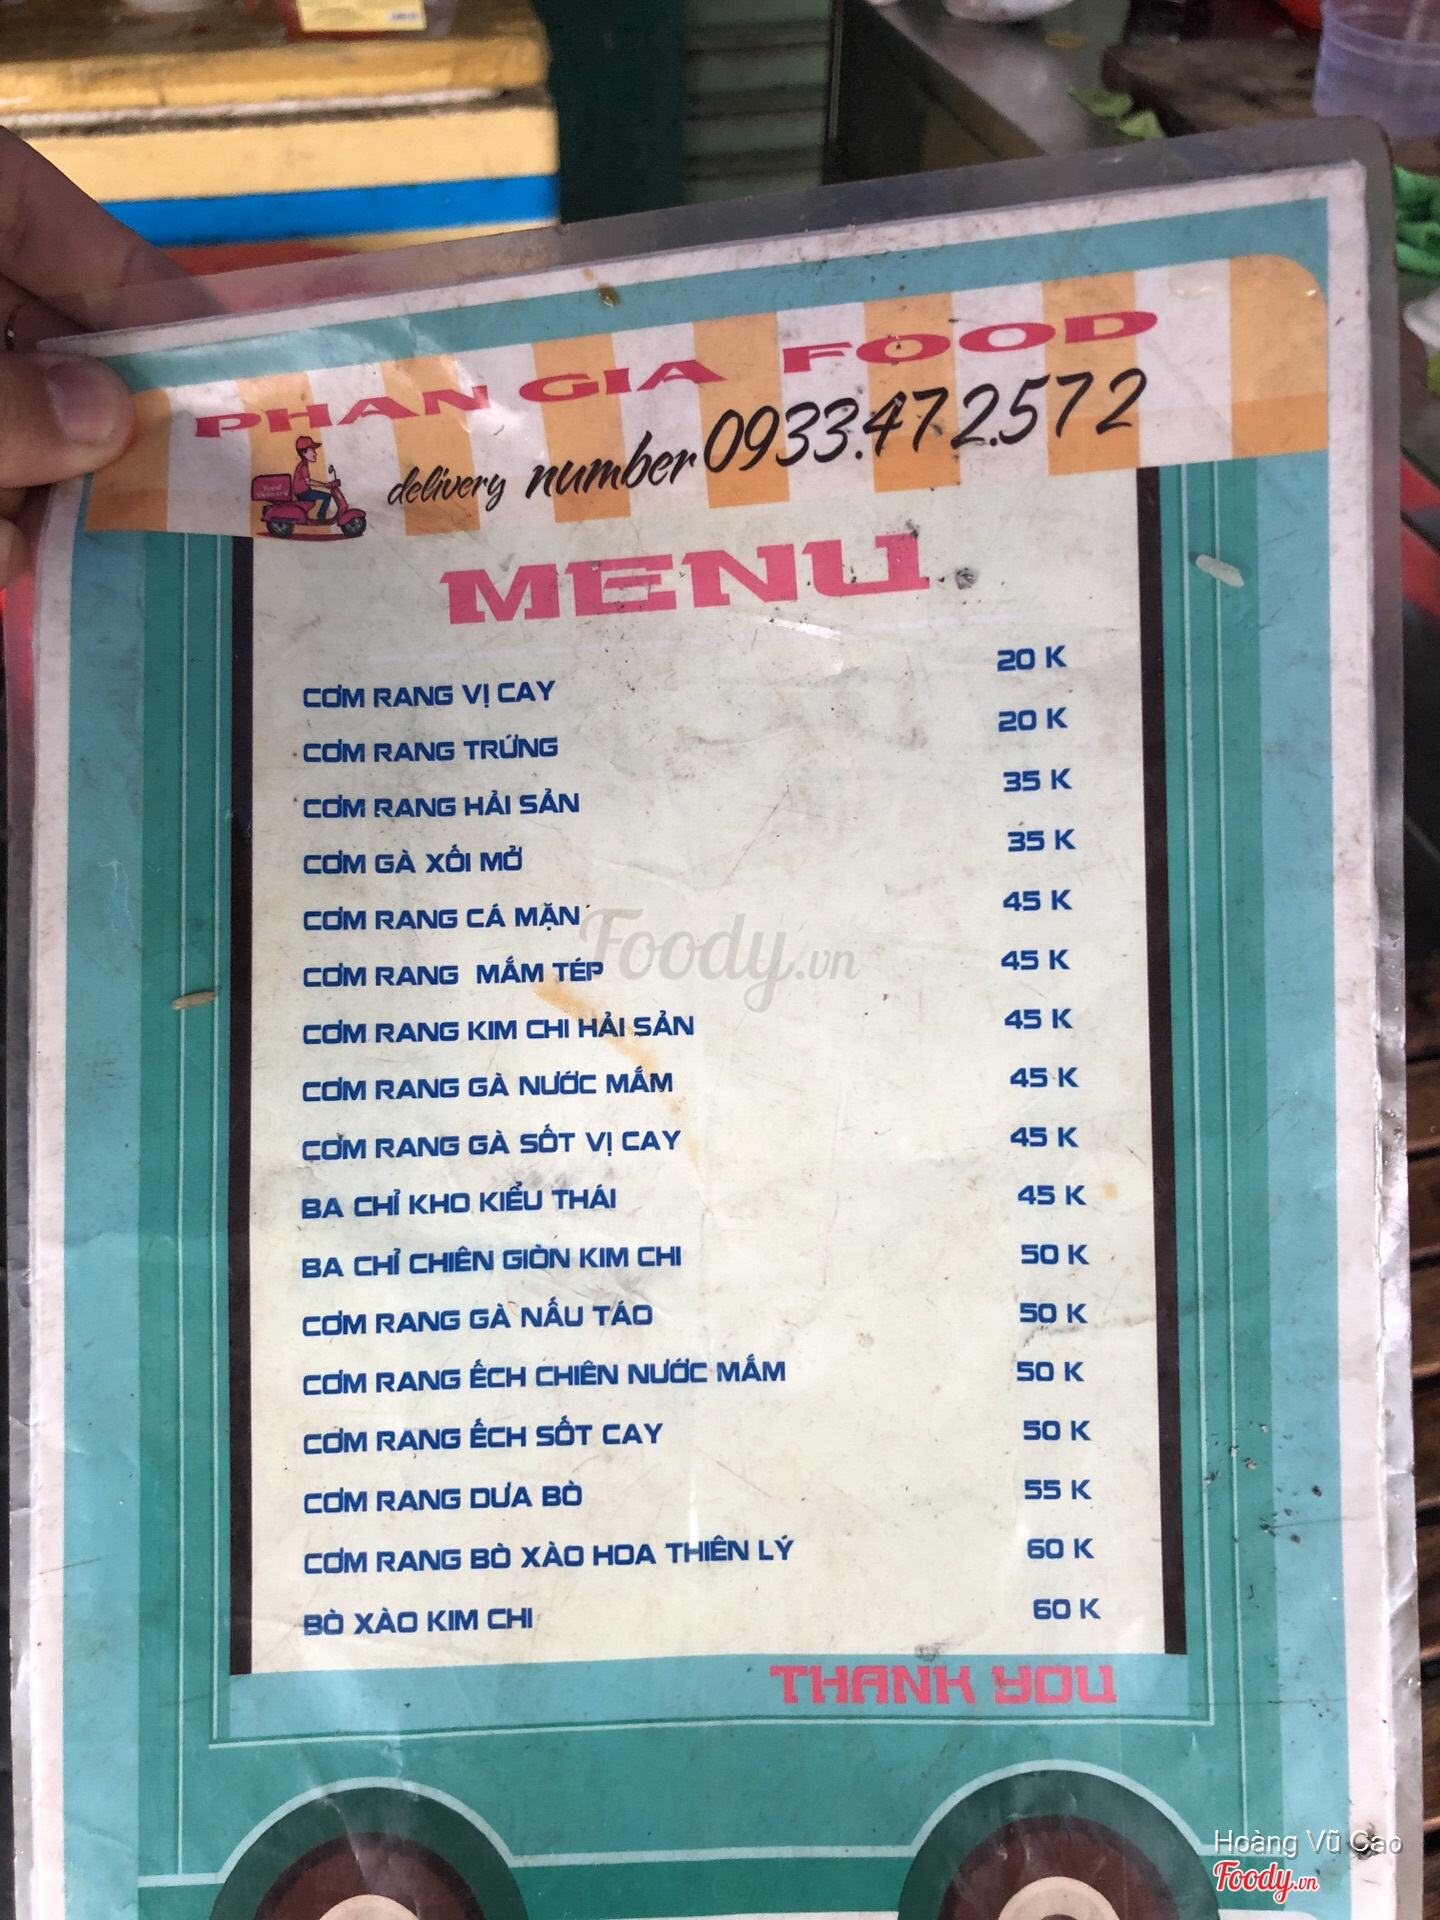 PHAN GIA FOOD
Food Delivery
delivery number 0933.472.572
MENU
CƠM RANG VỊ CAY 20 K
CƠM RANG TRỨNG 20 K
CƠM RANG HẢI SẢN 35 K
CƠM GÀ XỐI MỞ 35 K
CƠM RANG CÁ MẶN 45 K
CƠM RANG MẮM TÉP 45 K
CƠM RANG KIM CHI HẢI SẢN 45 K
CƠM RANG GÀ NƯỚC MẮM 45 K
CƠM RANG GÀ SỐT VỊ CAY 45 K
BA CHỈ KHO KIỂU THÁI 45 K
BA CHỈ CHIÊN GIÒN KIM CHI 50 K
CƠM RANG GÀ NẤU TÁO 50 K
CƠM RANG ẾCH CHIÊN NƯỚC MẮM 50 K
CƠM RANG ẾCH SỐT CAY 50 K
CƠM RANG DƯA BÒ 55 K
CƠM RANG BÒ XÀO HOA THIÊN LÝ 60 K
BÒ XÀO KIM CHI 60 K
THANK YOU
Foody.vn
Hoàng Vũ Cao
Foody.vn